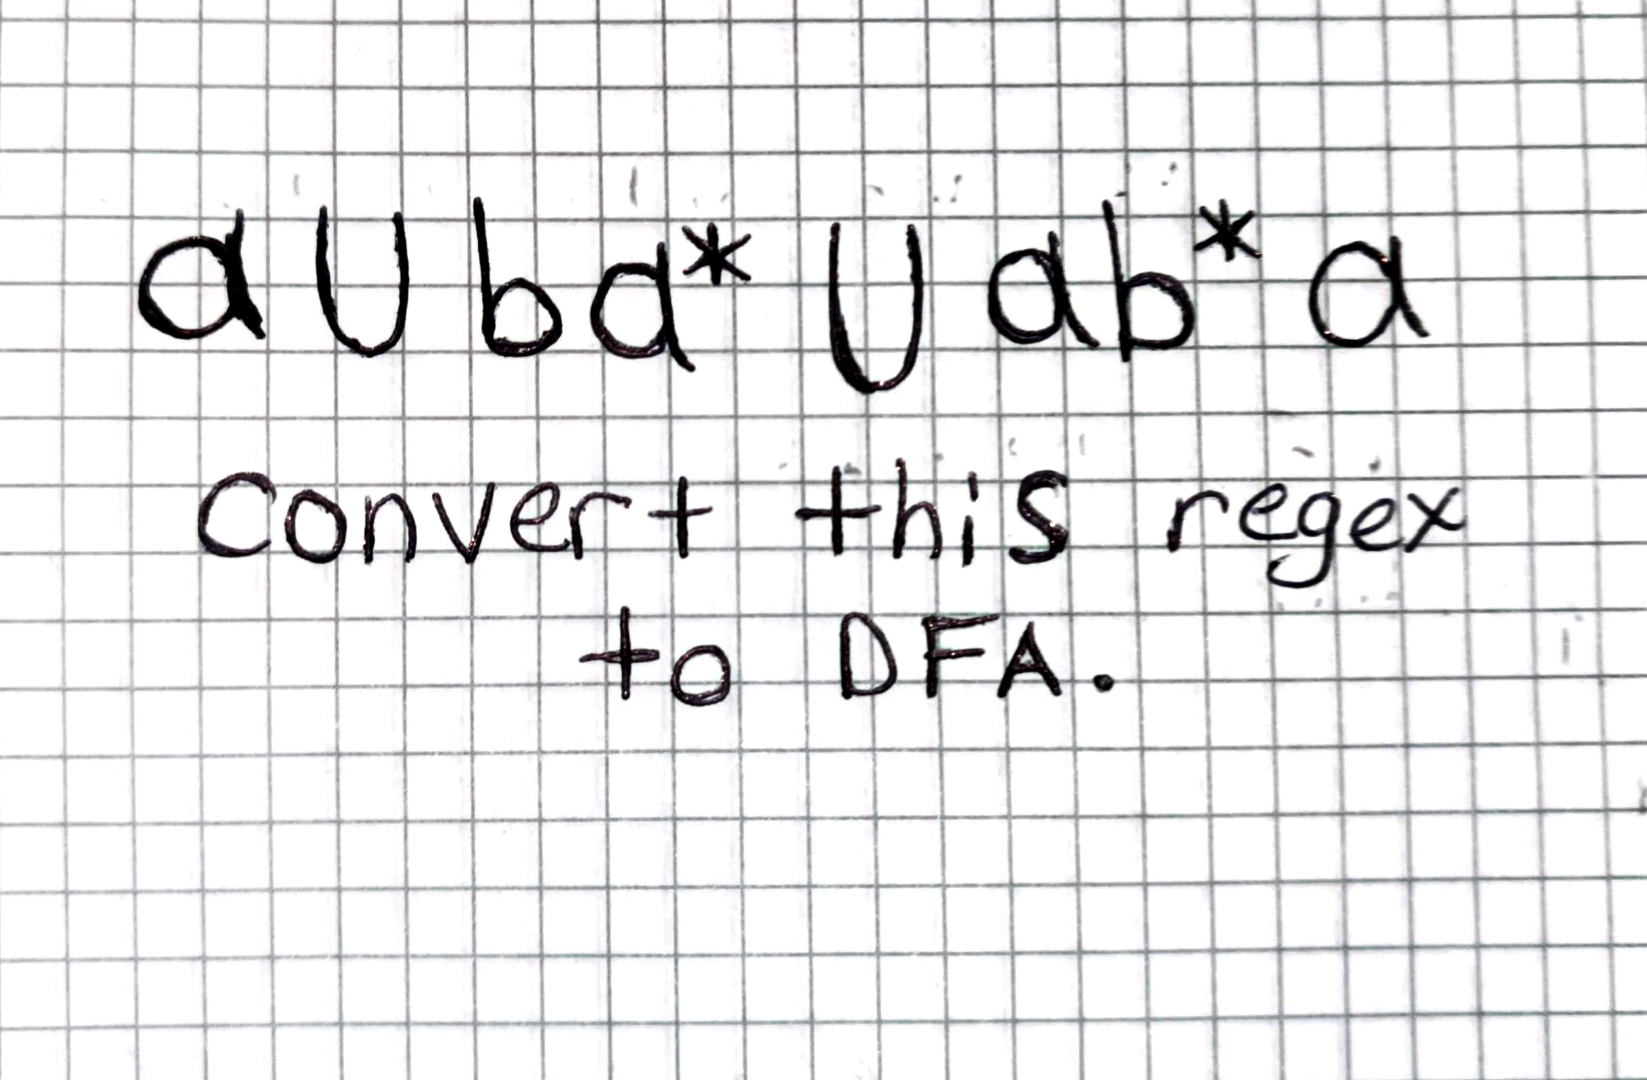 a U ba* U ab*a
convert this regex
to DFA.